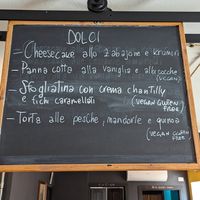 DOLCI
- Cheesecake allo zabajone e krumiri
- Panna cotta alla vaniglia e albicocche
(VEGAN)
- Sfogliatina con crema chantilly
e fichi caramellati
(VEGAN GLUTEN
FREE)
- Torta alle pesche, mandorle e quinoa
(VEGAN GLUTEN
FREE)